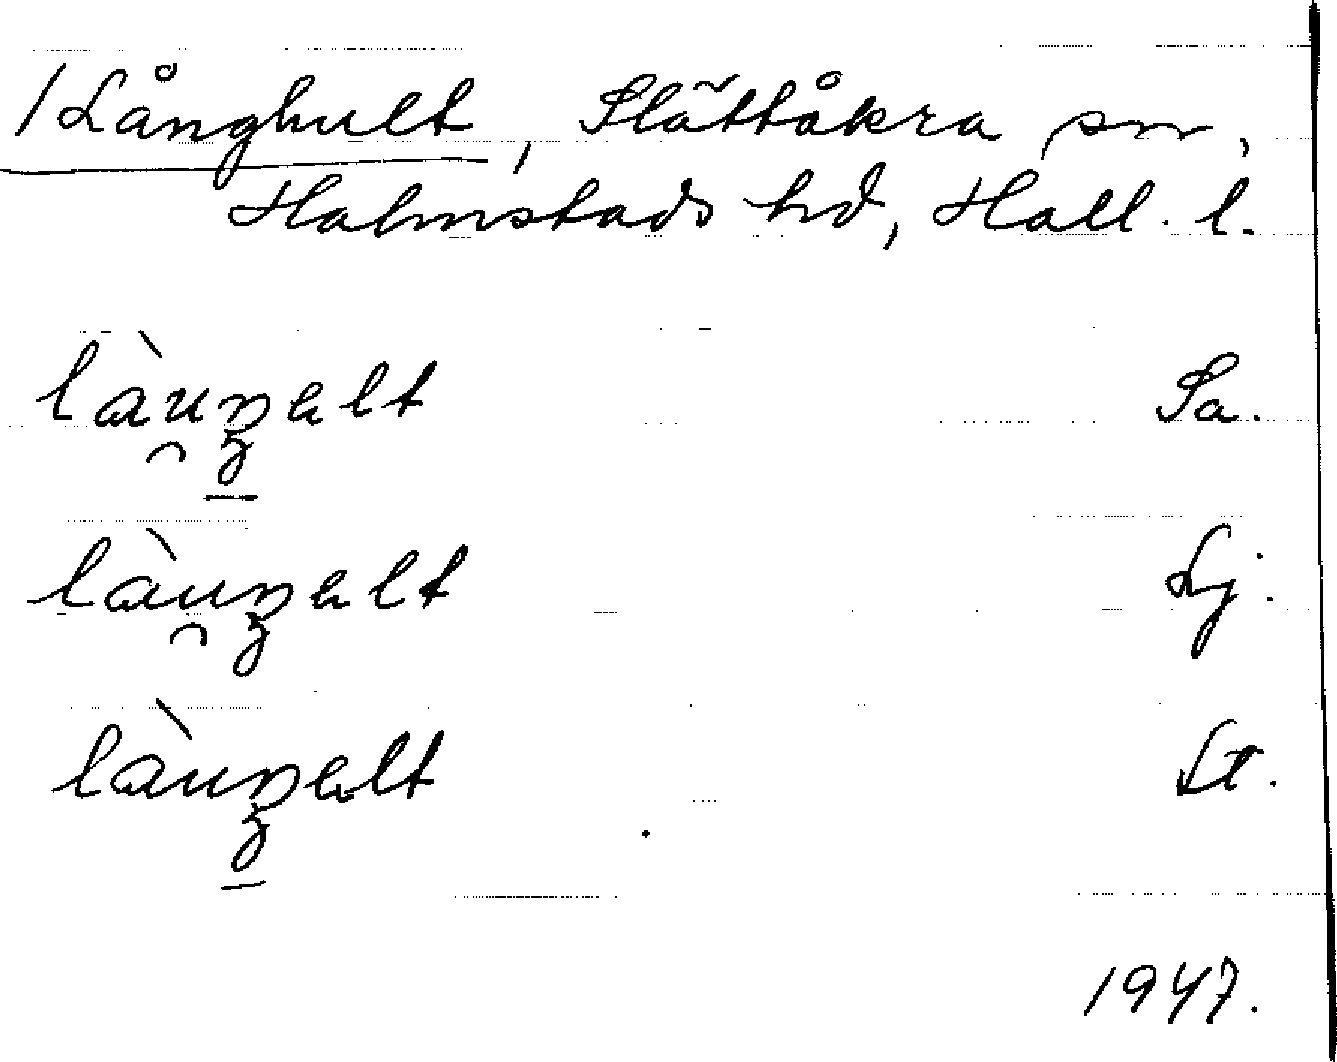 / Långhult, Slättåkra sn,
Halmstads hd, Hall. l.
làuŋalt Sa.
làuŋalt Lj.
làuŋalt St.
1947.